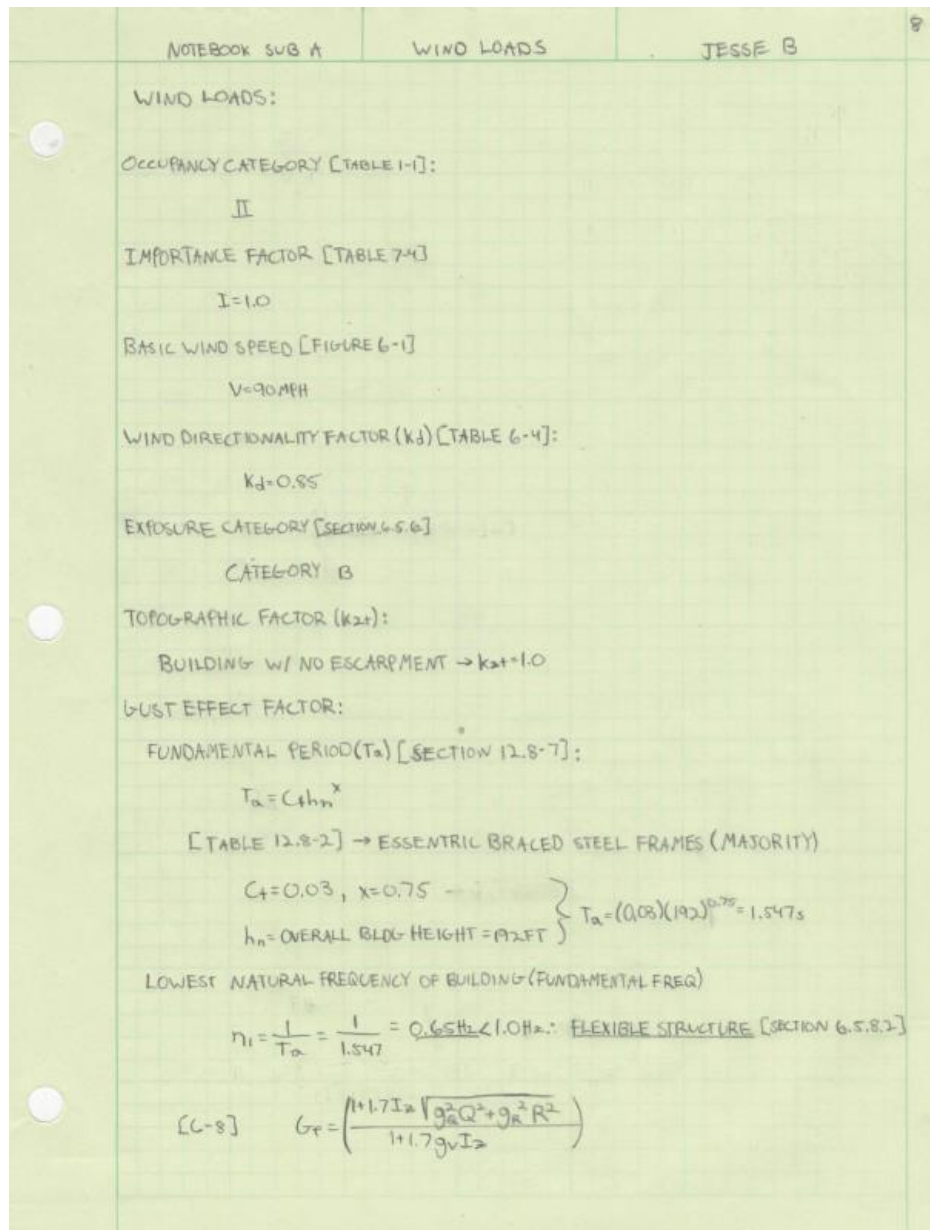 8
NOTEBOOK SUB A WIND LOADS JESSE B
WIND LOADS:
OCCUPANCY CATEGORY [TABLE 1-1]:
II
IMPORTANCE FACTOR [TABLE 7-4]
I=1.0
BASIC WIND SPEED [FIGURE 6-1]
V=90MPH
WIND DIRECTIONALITY FACTOR (Kd) [TABLE 6-4]:
Kd=0.85
EXPOSURE CATEGORY [SECTION 6.5.6]
CATEGORY B
TOPOGRAPHIC FACTOR (kzt):
BUILDING W/ NO ESCARPMENT → kzt=1.0
GUST EFFECT FACTOR:
FUNDAMENTAL PERIOD (Ta) [SECTION 12.8-7]:
Ta = Cthn^x
[TABLE 12.8-2] → ESSENTRIC BRACED STEEL FRAMES (MAJORITY)
Ct=0.03, x=0.75
hn = OVERALL BLDG HEIGHT = 192FT } Ta=(0.03)(192)^0.75 = 1.547s
LOWEST NATURAL FREQUENCY OF BUILDING (FUNDAMENTAL FREQ)
n1 = 1/Ta = 1/1.547 = 0.65Hz < 1.0Hz ∴ FLEXIBLE STRUCTURE [SECTION 6.5.8.2]
[6-8] Gf = ((1+1.7Iz √(gQ²Q²+gR²R²))/(1+1.7gvIz))